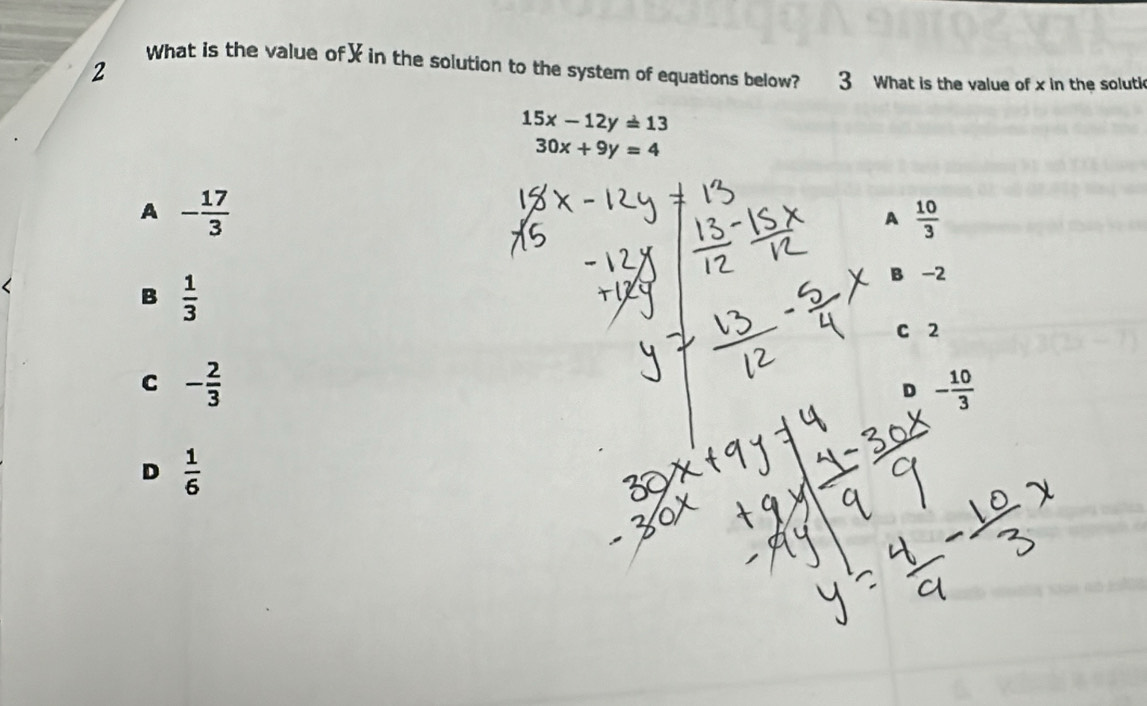 2 What is the value of y in the solution to the system of equations below?
15x − 12y = 13
30x + 9y = 4
A −17/3
B 1/3
C −2/3
D 1/6
15x - 12y = 13
-15
-12y 13/12 - 15x/12
+12y
y = 13/12 - 5/4 x
30x + 9y = 4
-30x +9y 4/9 - 30x/9
-9y
y = 4/9 - 10/3 x
3 What is the value of x in the
A 10/3
B −2
C 2
D −10/3